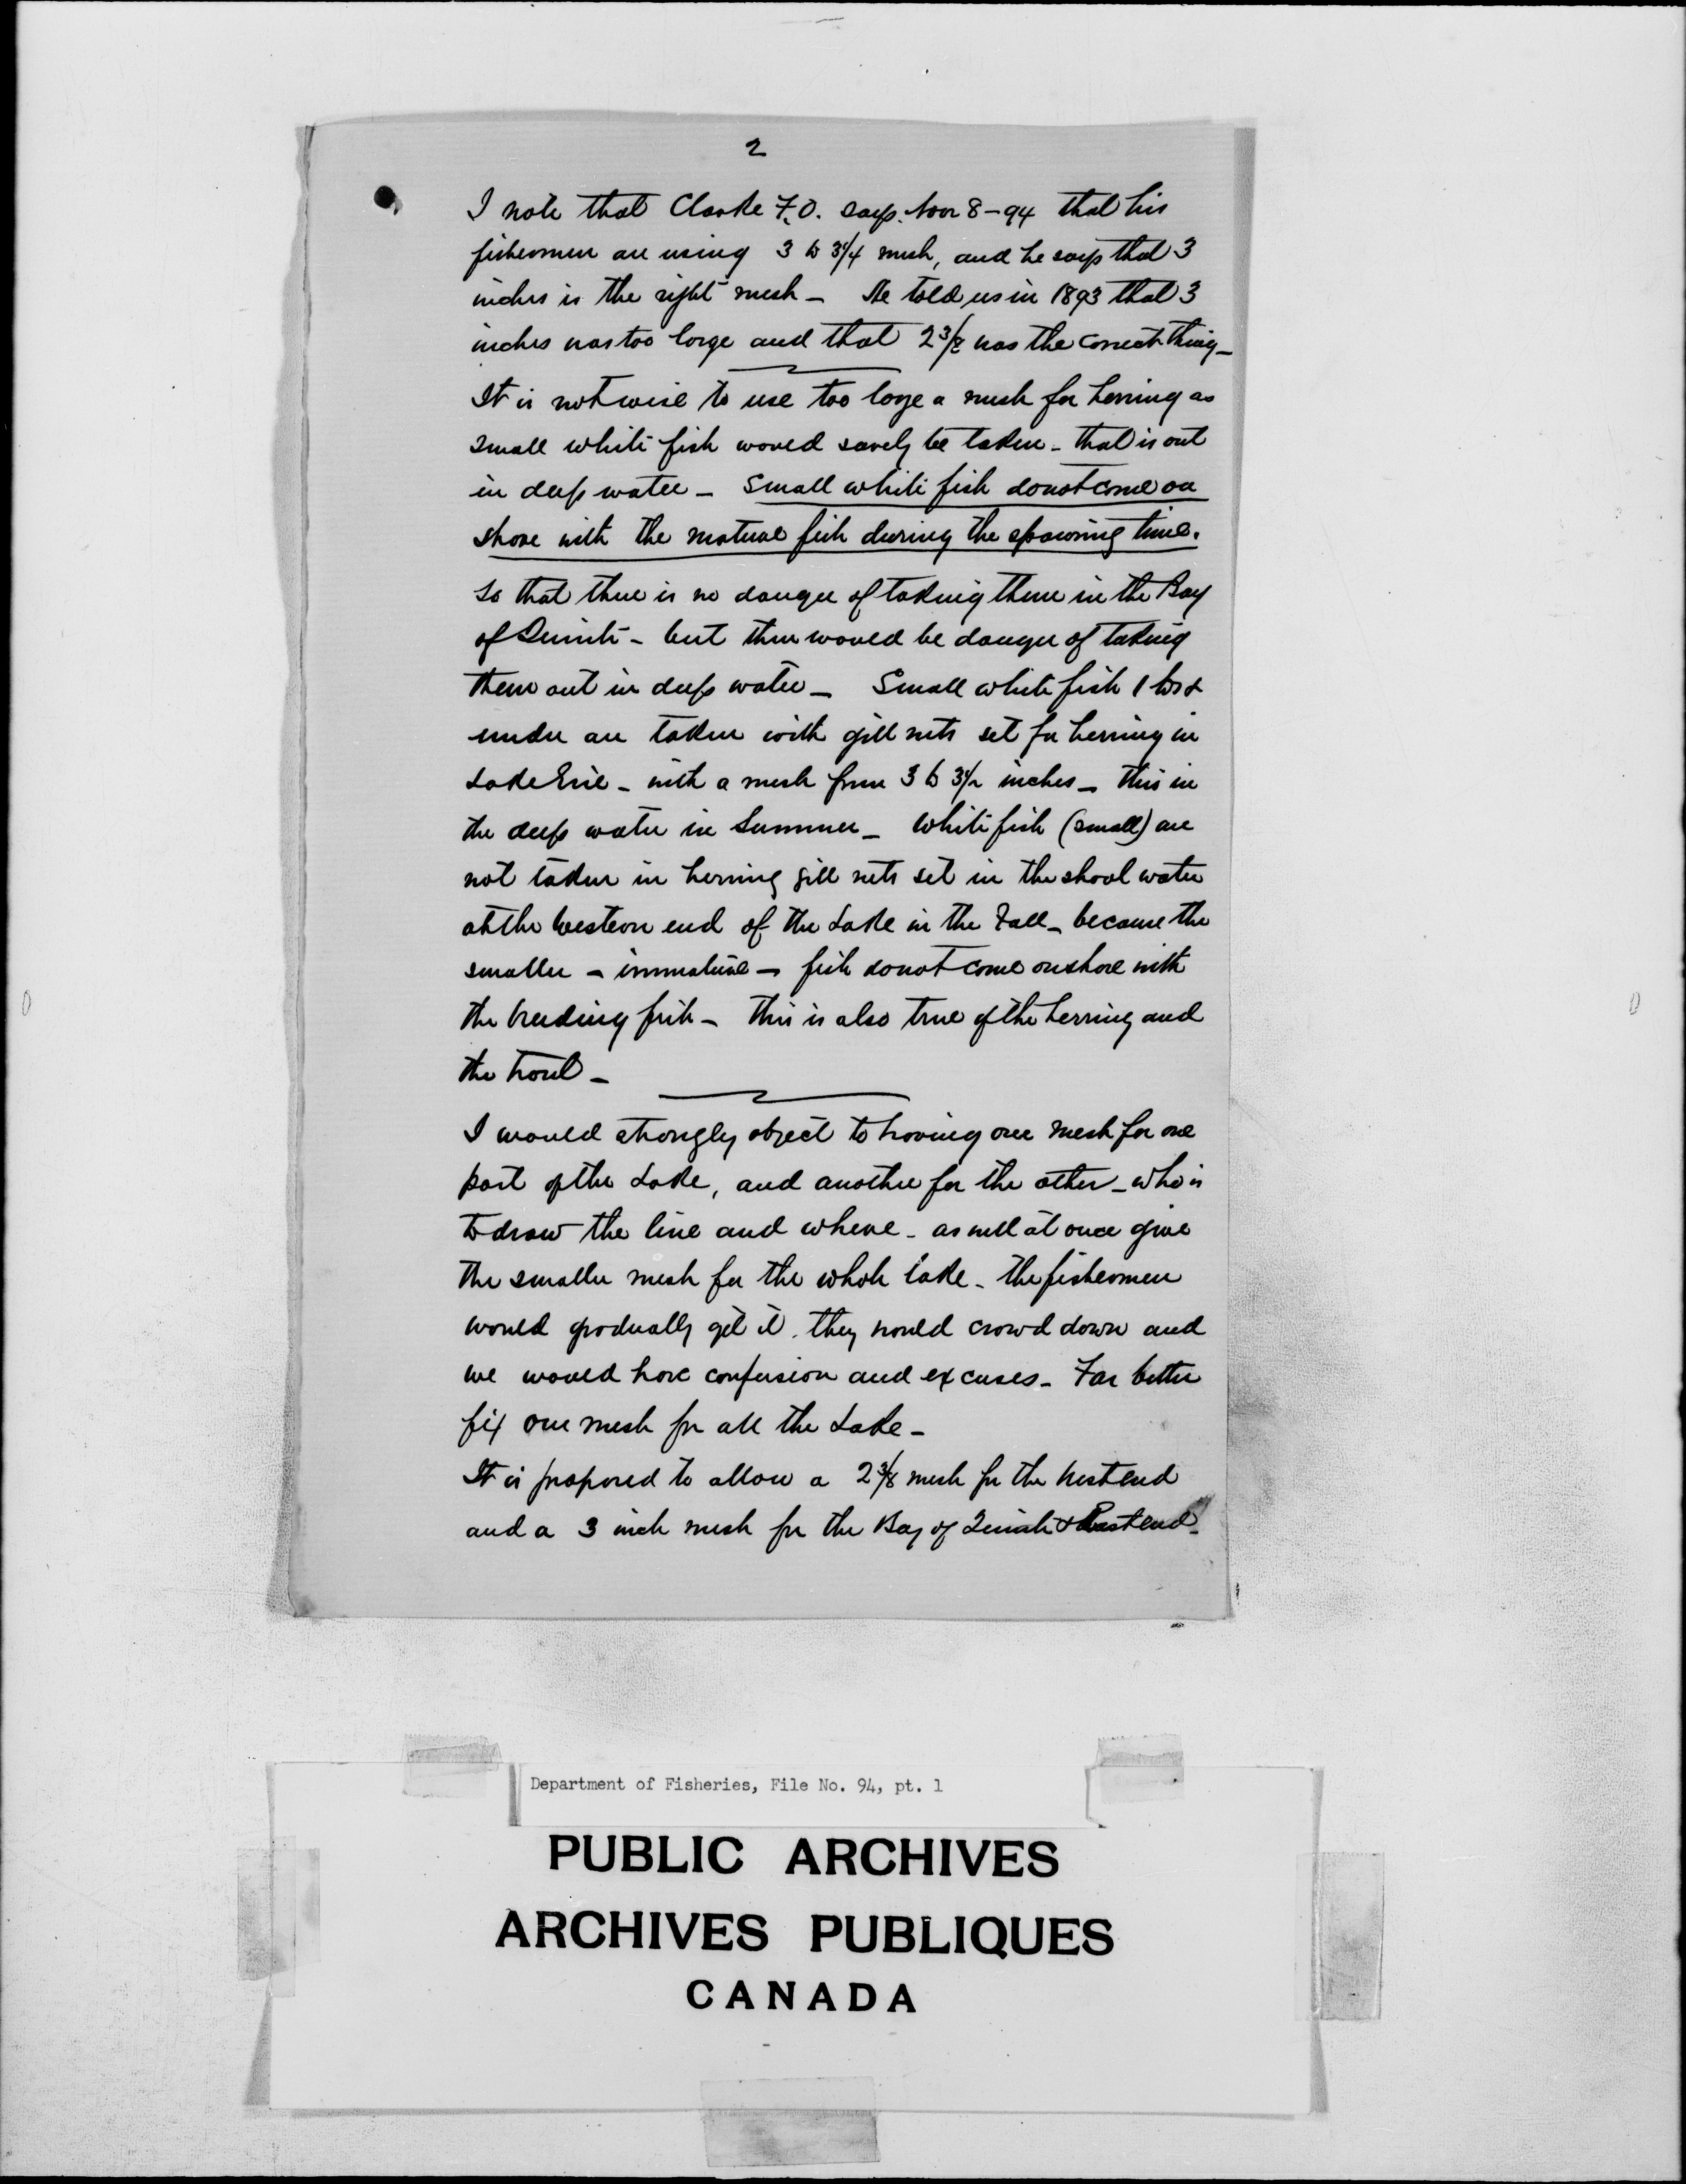 2
I note that Clarke F.O. says. Nov 8-94 that his
fishermen are using 3 to 3¼ mesh, and he says that 3
inches is the right mesh - He told us in 1893 that 3
inches was too large and that 2 3/8 was the correct thing -
It is not wise to use too large a mesh for herring as
small white fish would surely be taken - that is out
in deep water - Small white fish do not come on
shore with the mature fish during the spawning time.
So that there is no danger of taking them in the Bay
of Quinté - but there would be danger of taking
them out in deep water - Small white fish 1 lb &
under are taken with gill nets set for herring in
Lake Erie - with a mesh from 3 to 3½ inches - this in
the deep water in Summer - White fish (small) are
not taken in herring gill nets set in the shoal water
at the Western end of the Lake in the Fall - because the
smaller - immature - fish do not come on shore with
the breeding fish - this is also true of the herring and
the trout -
I would strongly object to having one mesh for one
part of the Lake, and another for the other - who is
to draw the line and where - as well at once give
the smaller mesh for the whole lake - the fishermen
would gradually get it. they would crowd down and
we would have confusion and excuses - Far better
fix one mesh for all the Lake -
It is proposed to allow a 2 3/8 mesh for the West end
and a 3 inch mesh for the Bay of Quinté & East end -
Department of Fisheries, File No. 94, pt. 1
PUBLIC ARCHIVES
ARCHIVES PUBLIQUES
CANADA